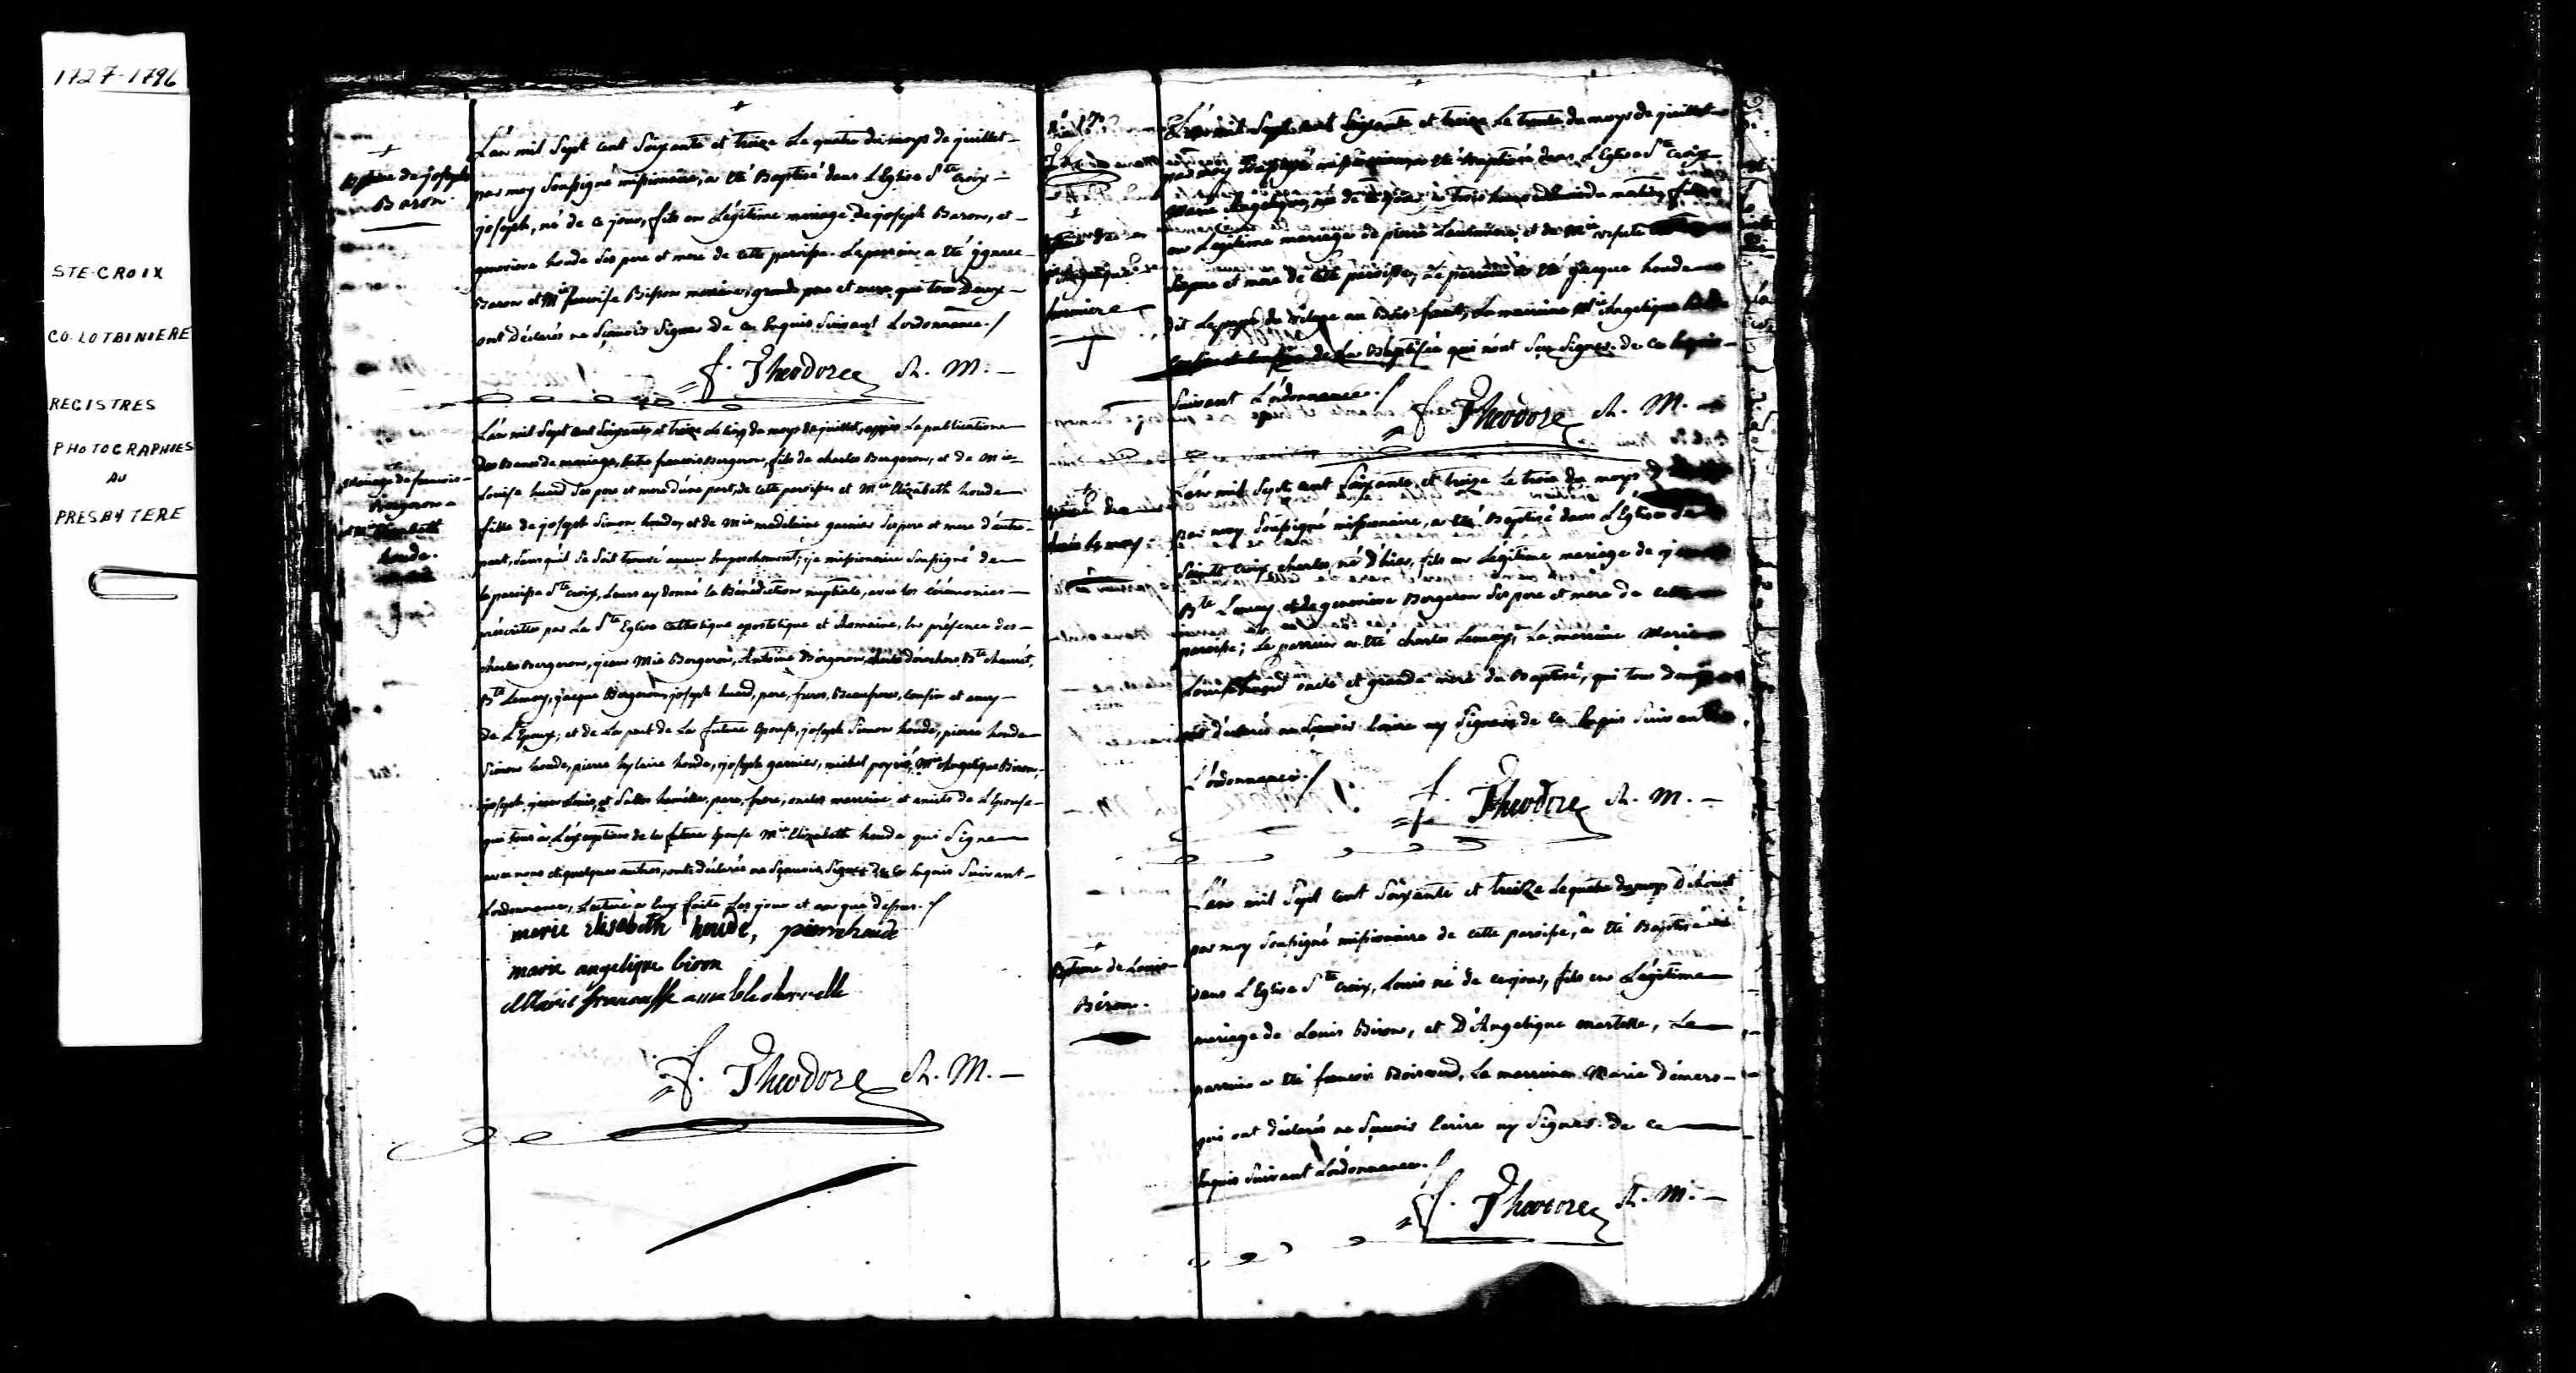 1727-1796
STE-CROIX
CO. LOTBINIERE
REGISTRES
PHOTOGRAPHIES
AU
PRESBYTERE
Baptême de joseph
Baron
L'an mil Sept cent Soixante et treize Le quatre du moys de juillet
par moy Soussigné missionaire, a été Baptisé dans L'Eglise Ste Croix
joseph, né de ce jour, fils en Légitime mariage de joseph Baron, et
genevieve houde Ses pere et mere de cette paroisse. Le parrain a été ygnace
Baron et Mie françoise Bisson marraine, grands pere et mere que tous Deux
ont déclarés ne Sçavoir Signer De ce Enquis Suivant Lordonnance./
f. Theodore R. M.
Mariage de francois
Bergeron
et Mie Elizabeth
houde.
L'an mil Sept cent Soixante et treize Le cinq du moys de juillet, apprès La publication
des Bans de mariage, Entre francois Bergeron, fils de charles Bergeron, et de Mie
Louise huard Ses pere et mere d'une part, de cette paroisse et Mie Elizabeth houde
fille de joseph Simon houde, et de Mie madelaine garnier Ses pere et mere d'autre
part, Sans qu'il Se Soit trouvé aucun Empechement; je missionaire Soussigné de
la paroisse Ste Croix, Leurs ay donné la Bénédiction nuptiale, avec les cérémonies
préscrittes par La Ste Eglise Catholique apostolique et Romaine, En présence des
charles Bergeron, jean Mie Bergeron, Antoine Bergeron, charles dérochers Bte
Bte Lemay, jacque Bergeron, joseph huard, pere, freres, Beaufreres, Cousin et amy
de L'Epoux; et de La part de La future Epouse, joseph Simon houde, pierre houde
Simon houde, pierre hylaire houde, joseph garnier, michel Mie Angelique Biron,
joseph, jean Louis, et pere, frere, oncles marraine et amis de L'Epouse
qui tous a L'exception de la future Epouse Mie Elizabeth houde qui Signe
avec nous et quelques autres, ont déclarés ne Sçavoir Signer de ce Enquis Suivant
Lordonnance, Lecture a Eux faite Les jour et an que dessus./
marie elisabeth houde, pierre houde
marie angelique biron
Marie
f. Theodore R. M.
L'an mil Sept cent Soixante et treize Le trente du moys de juillet
par moy Soussigné missionaire, a été Baptisée dans L'Eglise Ste Croix
Marie Angelique, née de ce jour, à trois heures du matin, fille
en Légitime mariage de pierre et de Mie
Ses pere et mere de cette paroisse, Le parrain a été jacque houde
dit La marraine Mie Angelique
de La Baptisée qui n'ont Sçu Signer. de ce Enquis
Suivant L'ordonnance./
f. Theodore R. M.
L'an mil Sept cent Soixante et treize Le trois du moys
par moy Soussigné missionaire, a été Baptisé dans L'Eglise de
Sainte Croix, charles, né d'hier, fils en Légitime mariage de
Bte Lemay, et de genevieve Bergeron Ses pere et mere de cette
paroisse; Le parrain a été charles Lemay, La marraine Marie
Louise huard oncle et grande mere du Baptisé, qui tous deux
ont déclarés ne Sçavoir Ecrire ny Signer de ce Enquis Suivant
L'ordonnance./
f. Theodore R. M.
Baptême de Louis
Biron.
L'an mil Sept cent Soixante et treize Le quatre du moys D'Aoust
par moy Soussigné missionaire de cette paroisse, a été Baptisé
dans L'Eglise Ste Croix, Louis né de ce jour, fils en Légitime
mariage de Louis Biron, et D'Angelique martelle, Le
parrain a été francois Boisverd, La marraine Marie démers
qui ont déclarés ne Sçavoir Ecrire ny Signer. de ce
Enquis Suivant L'ordonnance./
f. Theodore R. M.